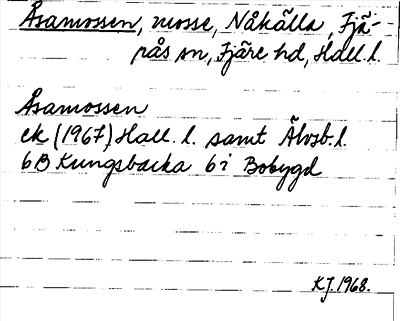 Åsamossen, mosse, Nåkälla, Fjä-
rås sn, Fjäre hd, Hall. l.
Åsamossen
ek (1967) Hall. l. samt Älvsb. l.
6B Kungsbacka 6i Bobygd
KJ. 1968.